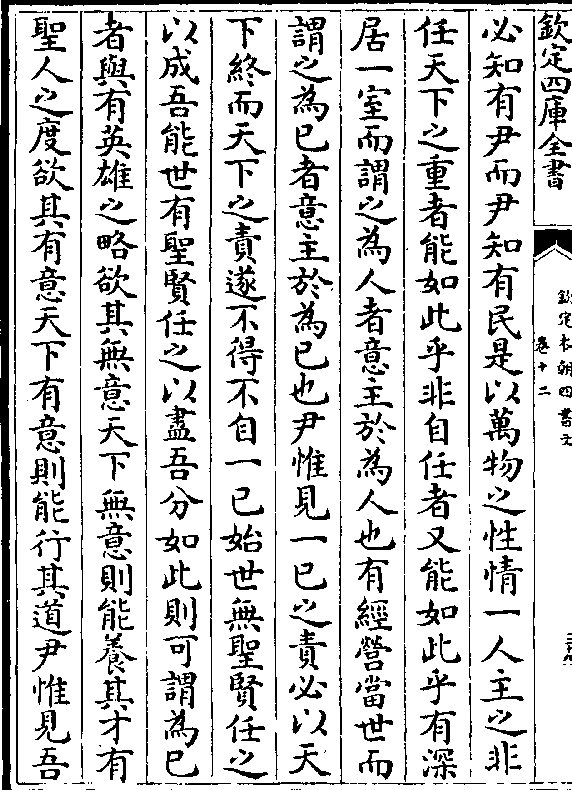 欽定四庫全書
欽定本朝四書文
卷十二
必知有尹而尹知有民是以萬物之性情一人主之非
任天下之重者能如此乎非自任者又能如此乎有深
居一室而謂之為人者意主於為人也有經營當世而
謂之為已者意主於為已也尹惟見一已之責必以天
下終而天下之責遂不得不自一已始世無聖賢任之
以成吾能世有聖賢任之以盡吾分如此則可謂為已
者與有英雄之略欲其無意天下無意則能養其才有
聖人之度欲其有意天下有意則能行其道尹惟見吾